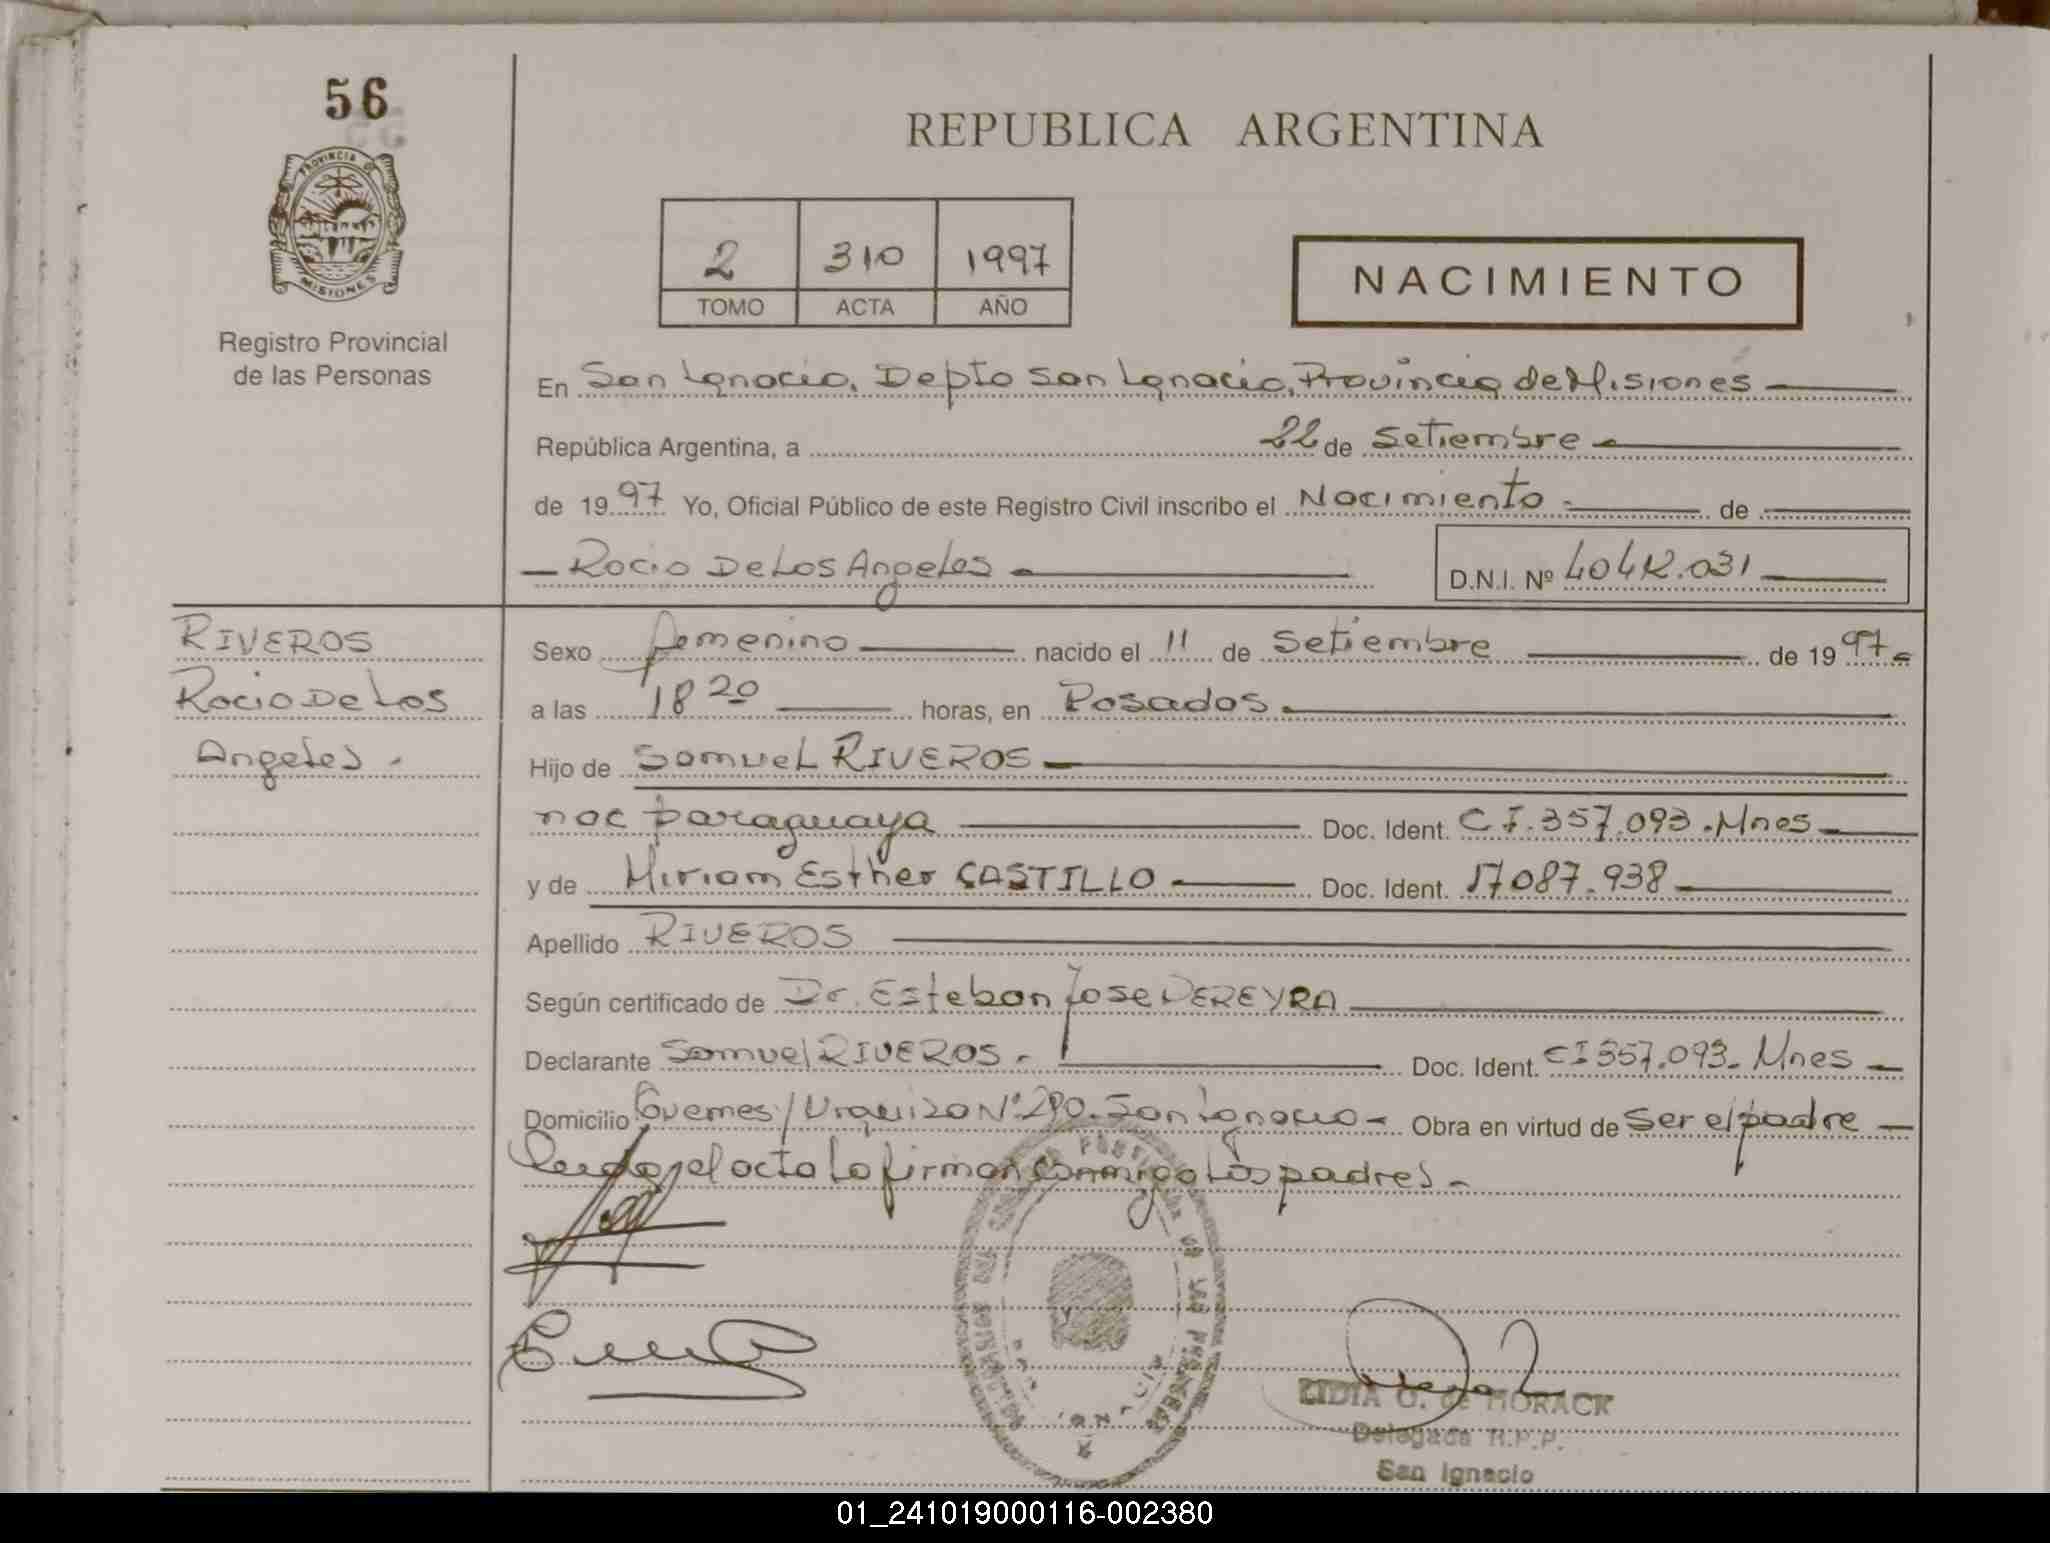 56
PROVINCIA D
MISIONES
Registro Provincial
de las Personas
REPUBLICA ARGENTINA
2 310 1997
TOMO ACTA AÑO
NACIMIENTO
En San Ignacio, Depto San Ignacio, Provincia de Misiones
República Argentina, a 22 de Setiembre
de 1997 Yo, Oficial Público de este Registro Civil inscribo el Nacimiento de
Rocio De Los Angeles
D.N.I. Nº 40.412.031
RIVEROS
Rocio De Los
Angeles.
Sexo femenino nacido el 11 de Setiembre de 1997
a las 18 20 horas, en Posadas
Hijo de Samuel RIVEROS
nac paraguaya Doc. Ident. CI.357.093.Mnes
y de Miriam Esther CASTILLO Doc. Ident. 17087.938
Apellido RIVEROS
Según certificado de Dr. Esteban Jose PEREYRA
Declarante Samuel RIVEROS. Doc. Ident. CI 357.093. Mnes
Domicilio Guemes/Urquiza Nº 290. San Ignacio Obra en virtud de Ser el padre
Leida el acta La firman conmigo Los padres.
DE LAS PERSONAS
LIDIA O. de HORACK
Delegada R.P.P.
San Ignacio
01_241019000116-002380